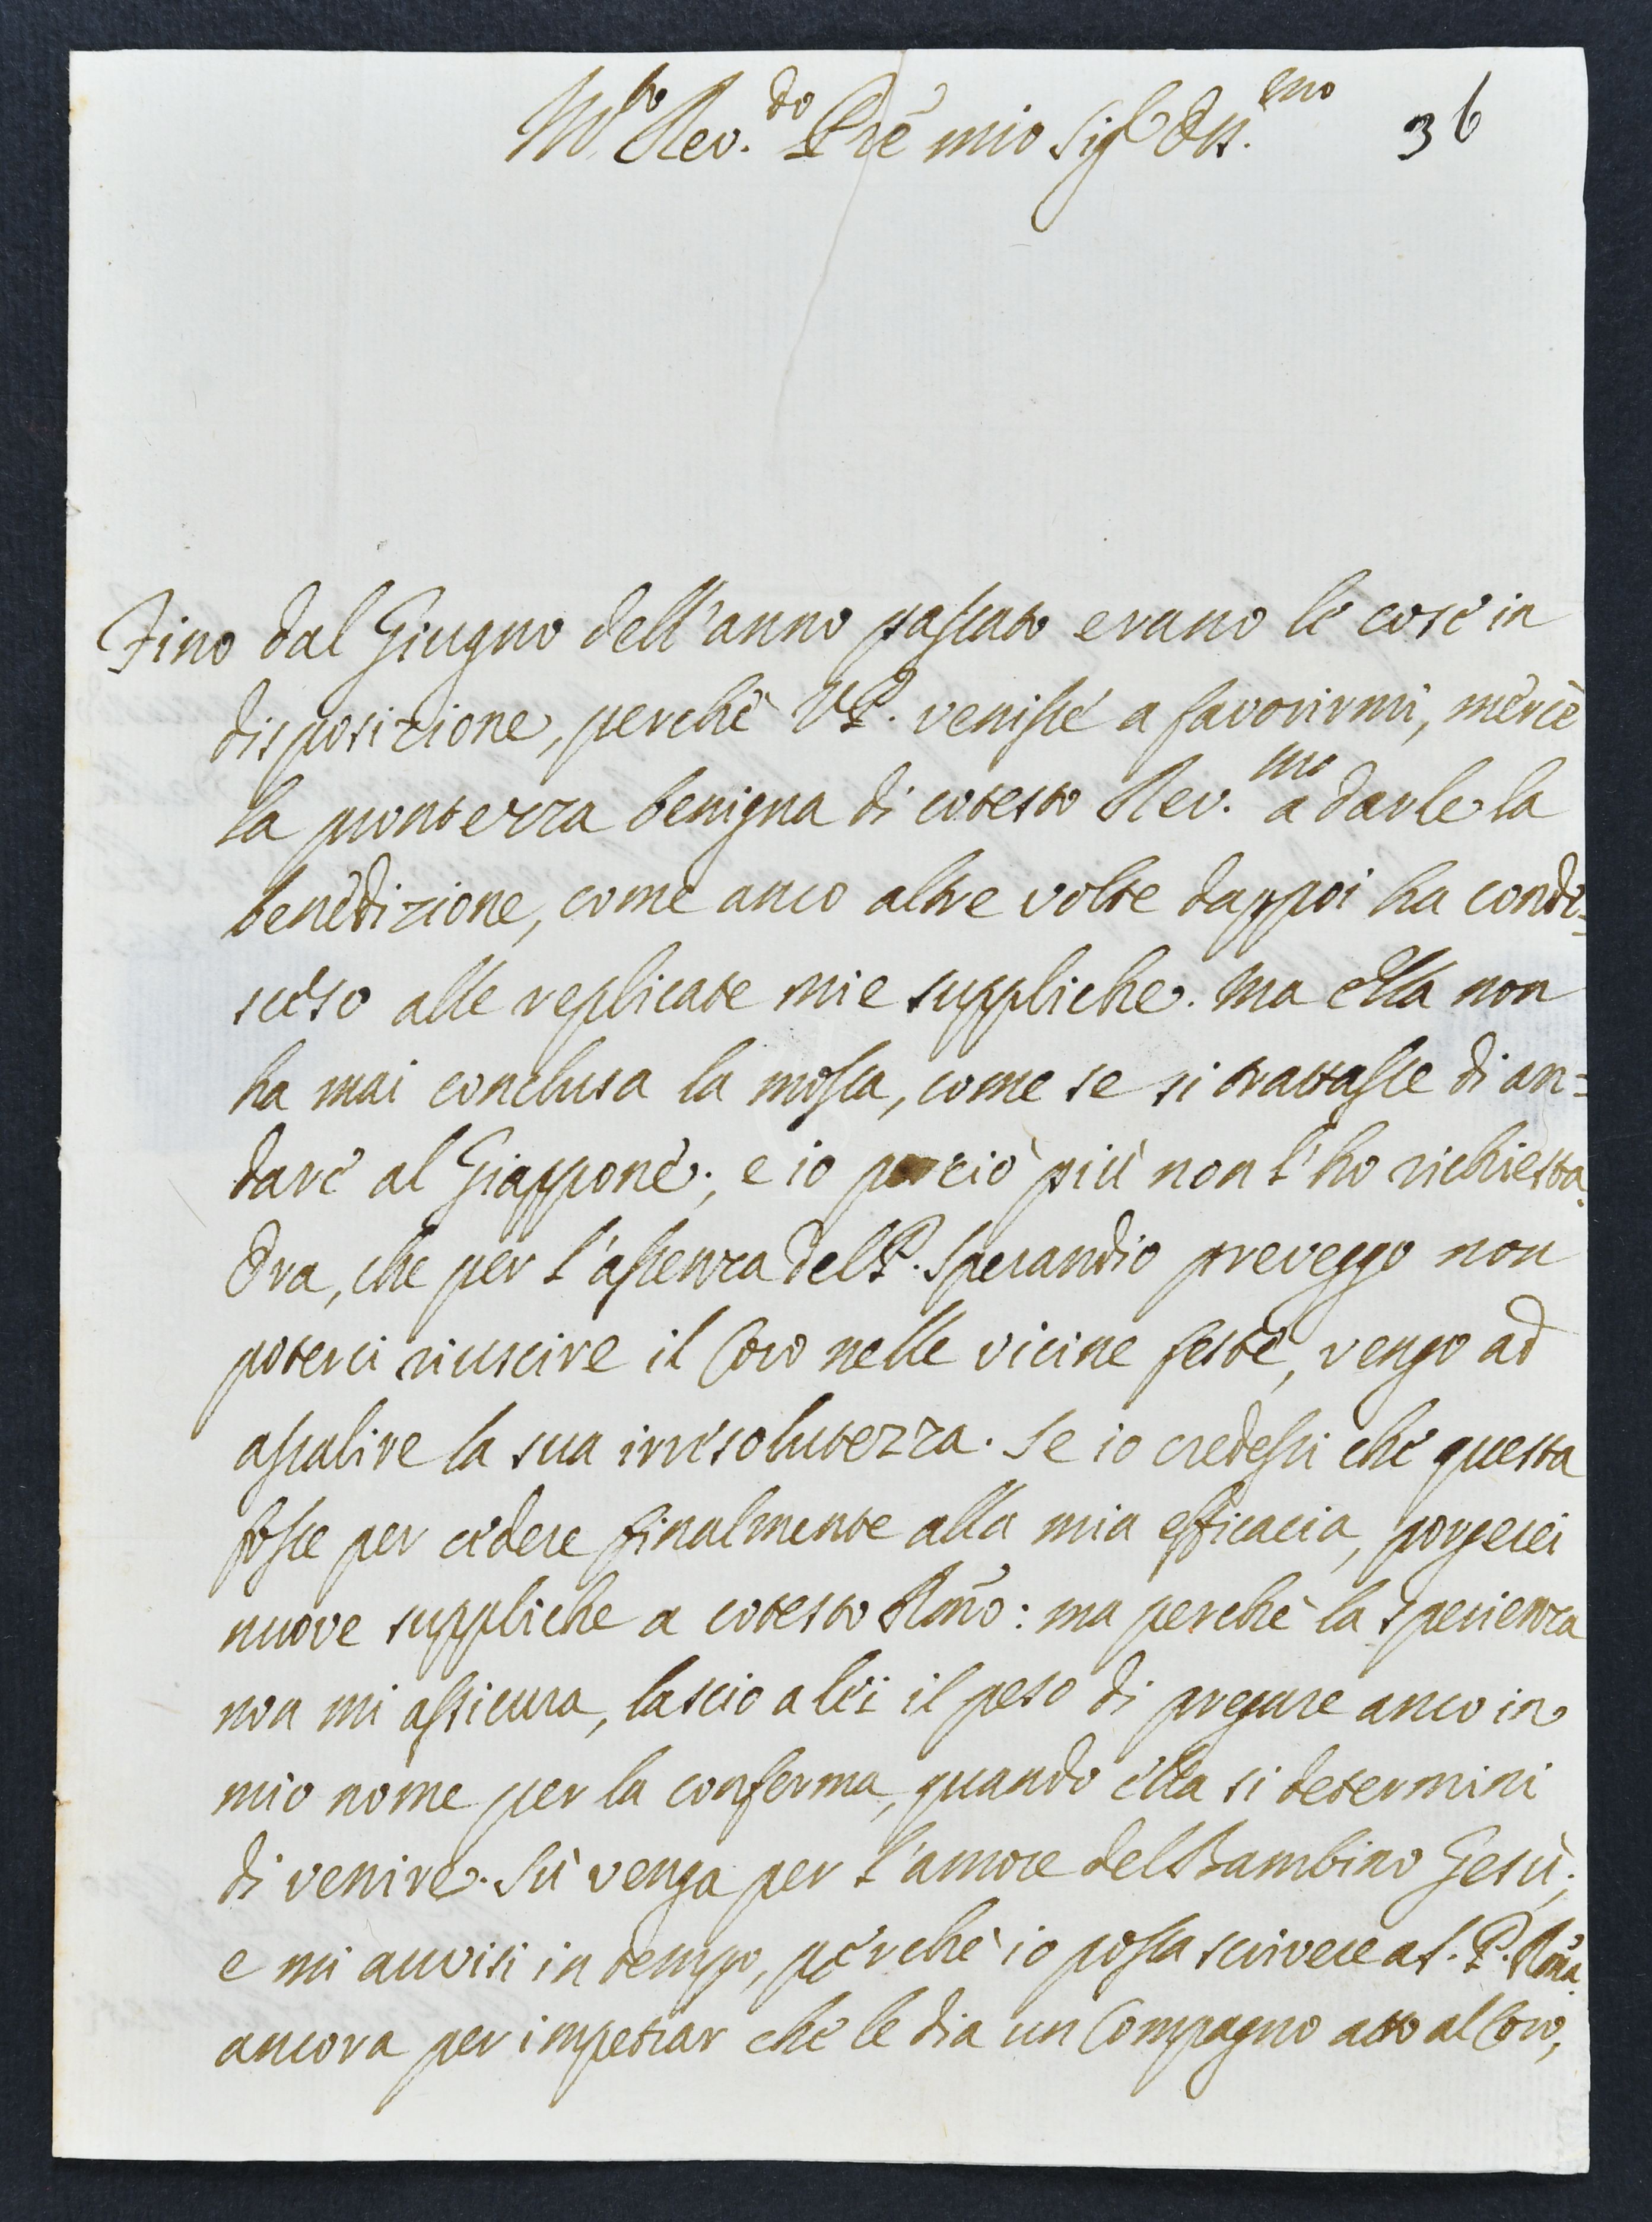 M.to Rev.do Prè mio Sig.r Oss.emo 36
Fino dal Giugno dell'anno passato erano le cose in
disposizione, perchè V.P. venisse a favorirmi, mercè
la prontezza benigna di cotesto Rev.mo a darle la
benedizione, come anco altre volte dappoi ha conde=
sceso alle replicate mie suppliche. Ma ella non
ha mai conclusa la mossa, come se si trattasse di an=
dare al Giappone; e io perciò più non l'ho richiesta.
Ora, che per l'assenza del P. Sperandio preveggo non
poterci riuscire il Coro nelle vicine feste, vengo ad
assalire la sua irrisolutezza. Se io credessi che questa
fosse per cedere finalmente alla mia efficacia, porgerei
nuove suppliche a cotesto Rm̃o: ma perchè la sperienza
non mi assicura, lascio a lei il peso di pregare anco in
mio nome per la conferma, quando ella si determini
di venire. Sù venga per l'amore del Bambino Gesù;
e mi avvisi in tempo, perchè io possa scrivere a S. P. Rm̃a
ancora per impetrar che le dia un Compagno atto al Coro,